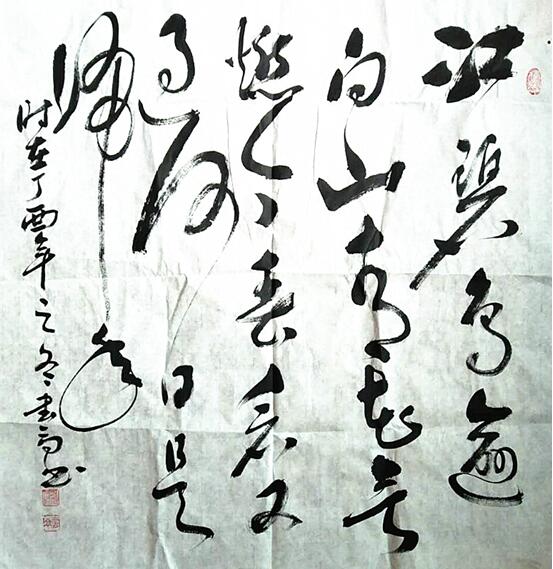 江碧鸟逾
白山青花欲
燃今春看又
过何日是
归年
时在丁酉年之冬